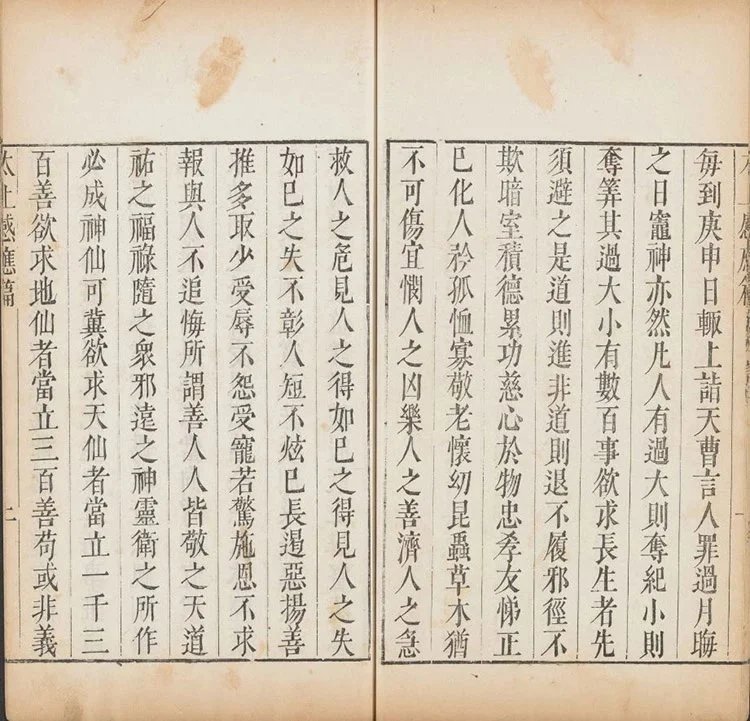 每到庚申日輒上詣天曹言人罪過月晦
之日竈神亦然凡人有過大則奪紀小則
奪筭其過大小有數百事欲求長生者先
須避之是道則進非道則退不履邪徑不
欺暗室積德累功慈心於物忠孝友悌正
己化人矜孤恤寡敬老懷幼昆蟲草木猶
不可傷宜憫人之凶樂人之善濟人之急
救人之危見人之得如己之得見人之失
如己之失不彰人短不炫己長遏惡揚善
推多取少受辱不怨受寵若驚施恩不求
報與人不追悔所謂善人人皆敬之天道
祐之福祿隨之衆邪遠之神靈衛之所作
必成神仙可冀欲求天仙者當立一千三
百善欲求地仙者當立三百善苟或非義
太上感應篇 二